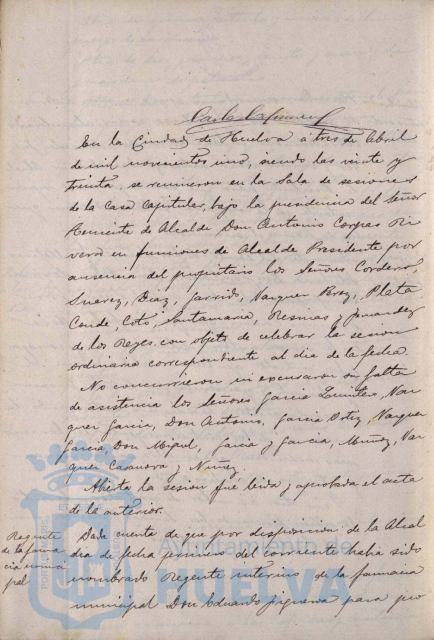 En la Ciudad de Huelva á tres de Abril
de mil novecientos uno, siendo las veinte y
treinta, se reunieron en la Sala de sesiones
de la Casa Capitular, bajo la presidencia del Señor
Teniente de Alcalde Don Antonio Corpas Ri
vero en funciones de Alcalde Presidente por
ausencia del propietario los Señores Cordero,
Suarez, Diaz, Garrido, Vazquez Perez, Plata
Conde, Coto, Santamaria, Resmas y Fernandez
de los Reyes, con objeto de celebrar la sesion
ordinaria correspondiente al dia de la fecha.
No concurrieron ni excusaron su falta
de asistencia los Señores Garcia Quintero, Vaz
quez Garcia, Don Antonio, Garcia Ortiz, Vazquez
Garcia, Don Miguel, Garcia y Garcia, Muñoz, Vaz
quez Casanova y Nuñez.
Abierta la sesion fué leida y aprobada el acta
de la anterior.
Regente
de la farma
cia munici
pal
Dada cuenta de que por disposicion de la Alcal
dia de fecha primero del corriente habia sido
nombrado Regente interino de la farmacia
municipal Don Eduardo Figueroa para pro
Ayuntamiento de
HUELVA